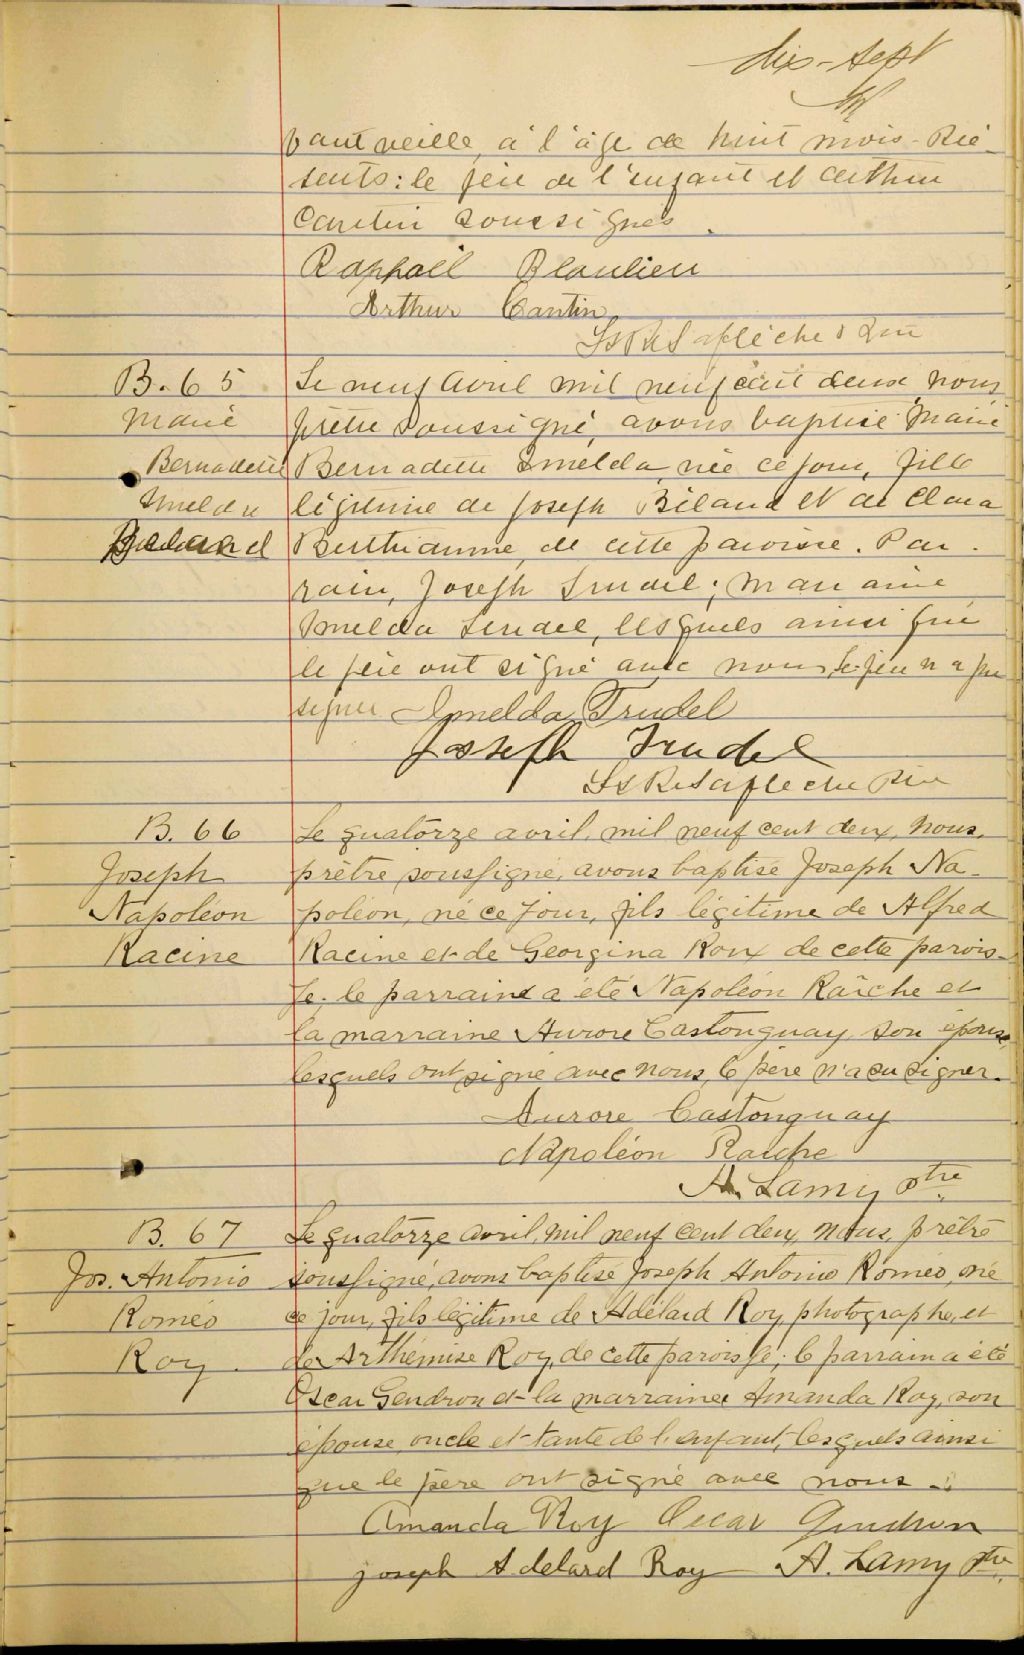 dix-sept
vant veille, à l'âge de huit mois. Pré-
sents: le père de l'enfant et Arthur
Cantin soussignés.
Raphaël Beaulieu
Arthur Cantin
Laflèche
B. 65
Marie
Bernadette
Imelda
Béland
Le neuf avril mil neuf cent deux, nous
prêtre soussigné, avons baptisé Marie
Bernadette Imelda, née ce jour, fille
légitime de Joseph Béland et de Clara
Berthiaume, de cette paroisse. Par-
rain, Joseph Trudel; marraine
Imelda Trudel, lesquels ainsi que
le père ont signé avec nous, le père n'a pu
signer
Imelda Trudel
Joseph Trudel
Laflèche Ptre
B. 66
Joseph
Napoléon
Racine
Le quatorze avril, mil neuf cent deux, nous,
prêtre soussigné, avons baptisé Joseph Na-
poléon, né ce jour, fils légitime de Alfred
Racine et de Georgina Roux de cette parois-
se. le parrain a été Napoléon Raîche et
la marraine Aurore Castonguay, son épouse,
lesquels ont signé avec nous, le père n'a su signer.
Aurore Castonguay
Napoléon Raiche
A. Lamy ptre
B. 67
Jos. Antonio
Roméo
Roy
Le quatorze avril, mil neuf cent deux, nous, prêtre
soussigné, avons baptisé Joseph Antonio Roméo, né
ce jour, fils légitime de Adélard Roy, photographe, et
de Arthémise Roy, de cette paroisse; le parrain a été
Oscar Gendron et la marraine Amanda Roy, son
épouse, oncle et tante de l'enfant, lesquels ainsi
que le père ont signé avec nous.
Amanda Roy Oscar Gendron
joseph Adelard Roy A. Lamy ptre